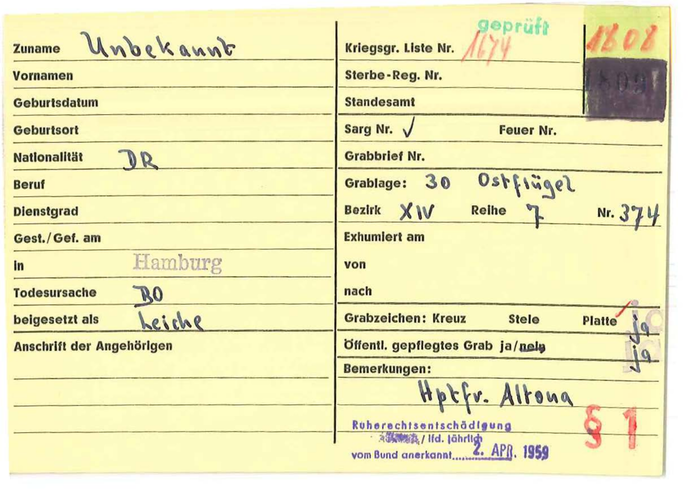 geprüft
Zuname Unbekannt
Vornamen
Geburtsdatum
Geburtsort
Nationalität DR
Beruf
Dienstgrad
Gest./Gef. am
in Hamburg
Todesursache BO
beigesetzt als Leiche
Anschrift der Angehörigen
Kriegsgr. Liste Nr. 1674 1808
Sterbe-Reg. Nr.
Standesamt
Sarg Nr. ✓ Feuer Nr.
Grabbrief Nr.
Grablage: 30 Ostflügel
Bezirk XIV Reihe 7 Nr. 374
Exhumiert am
von
nach
Grabzeichen: Kreuz Stele Platte ja
Öffentl. gepflegtes Grab ja/nein ja
Bemerkungen:
Hptfr. Altona
Ruherechtsentschädigung
/ lfd. jährlich
vom Bund anerkannt 2. APR. 1959
§ 1